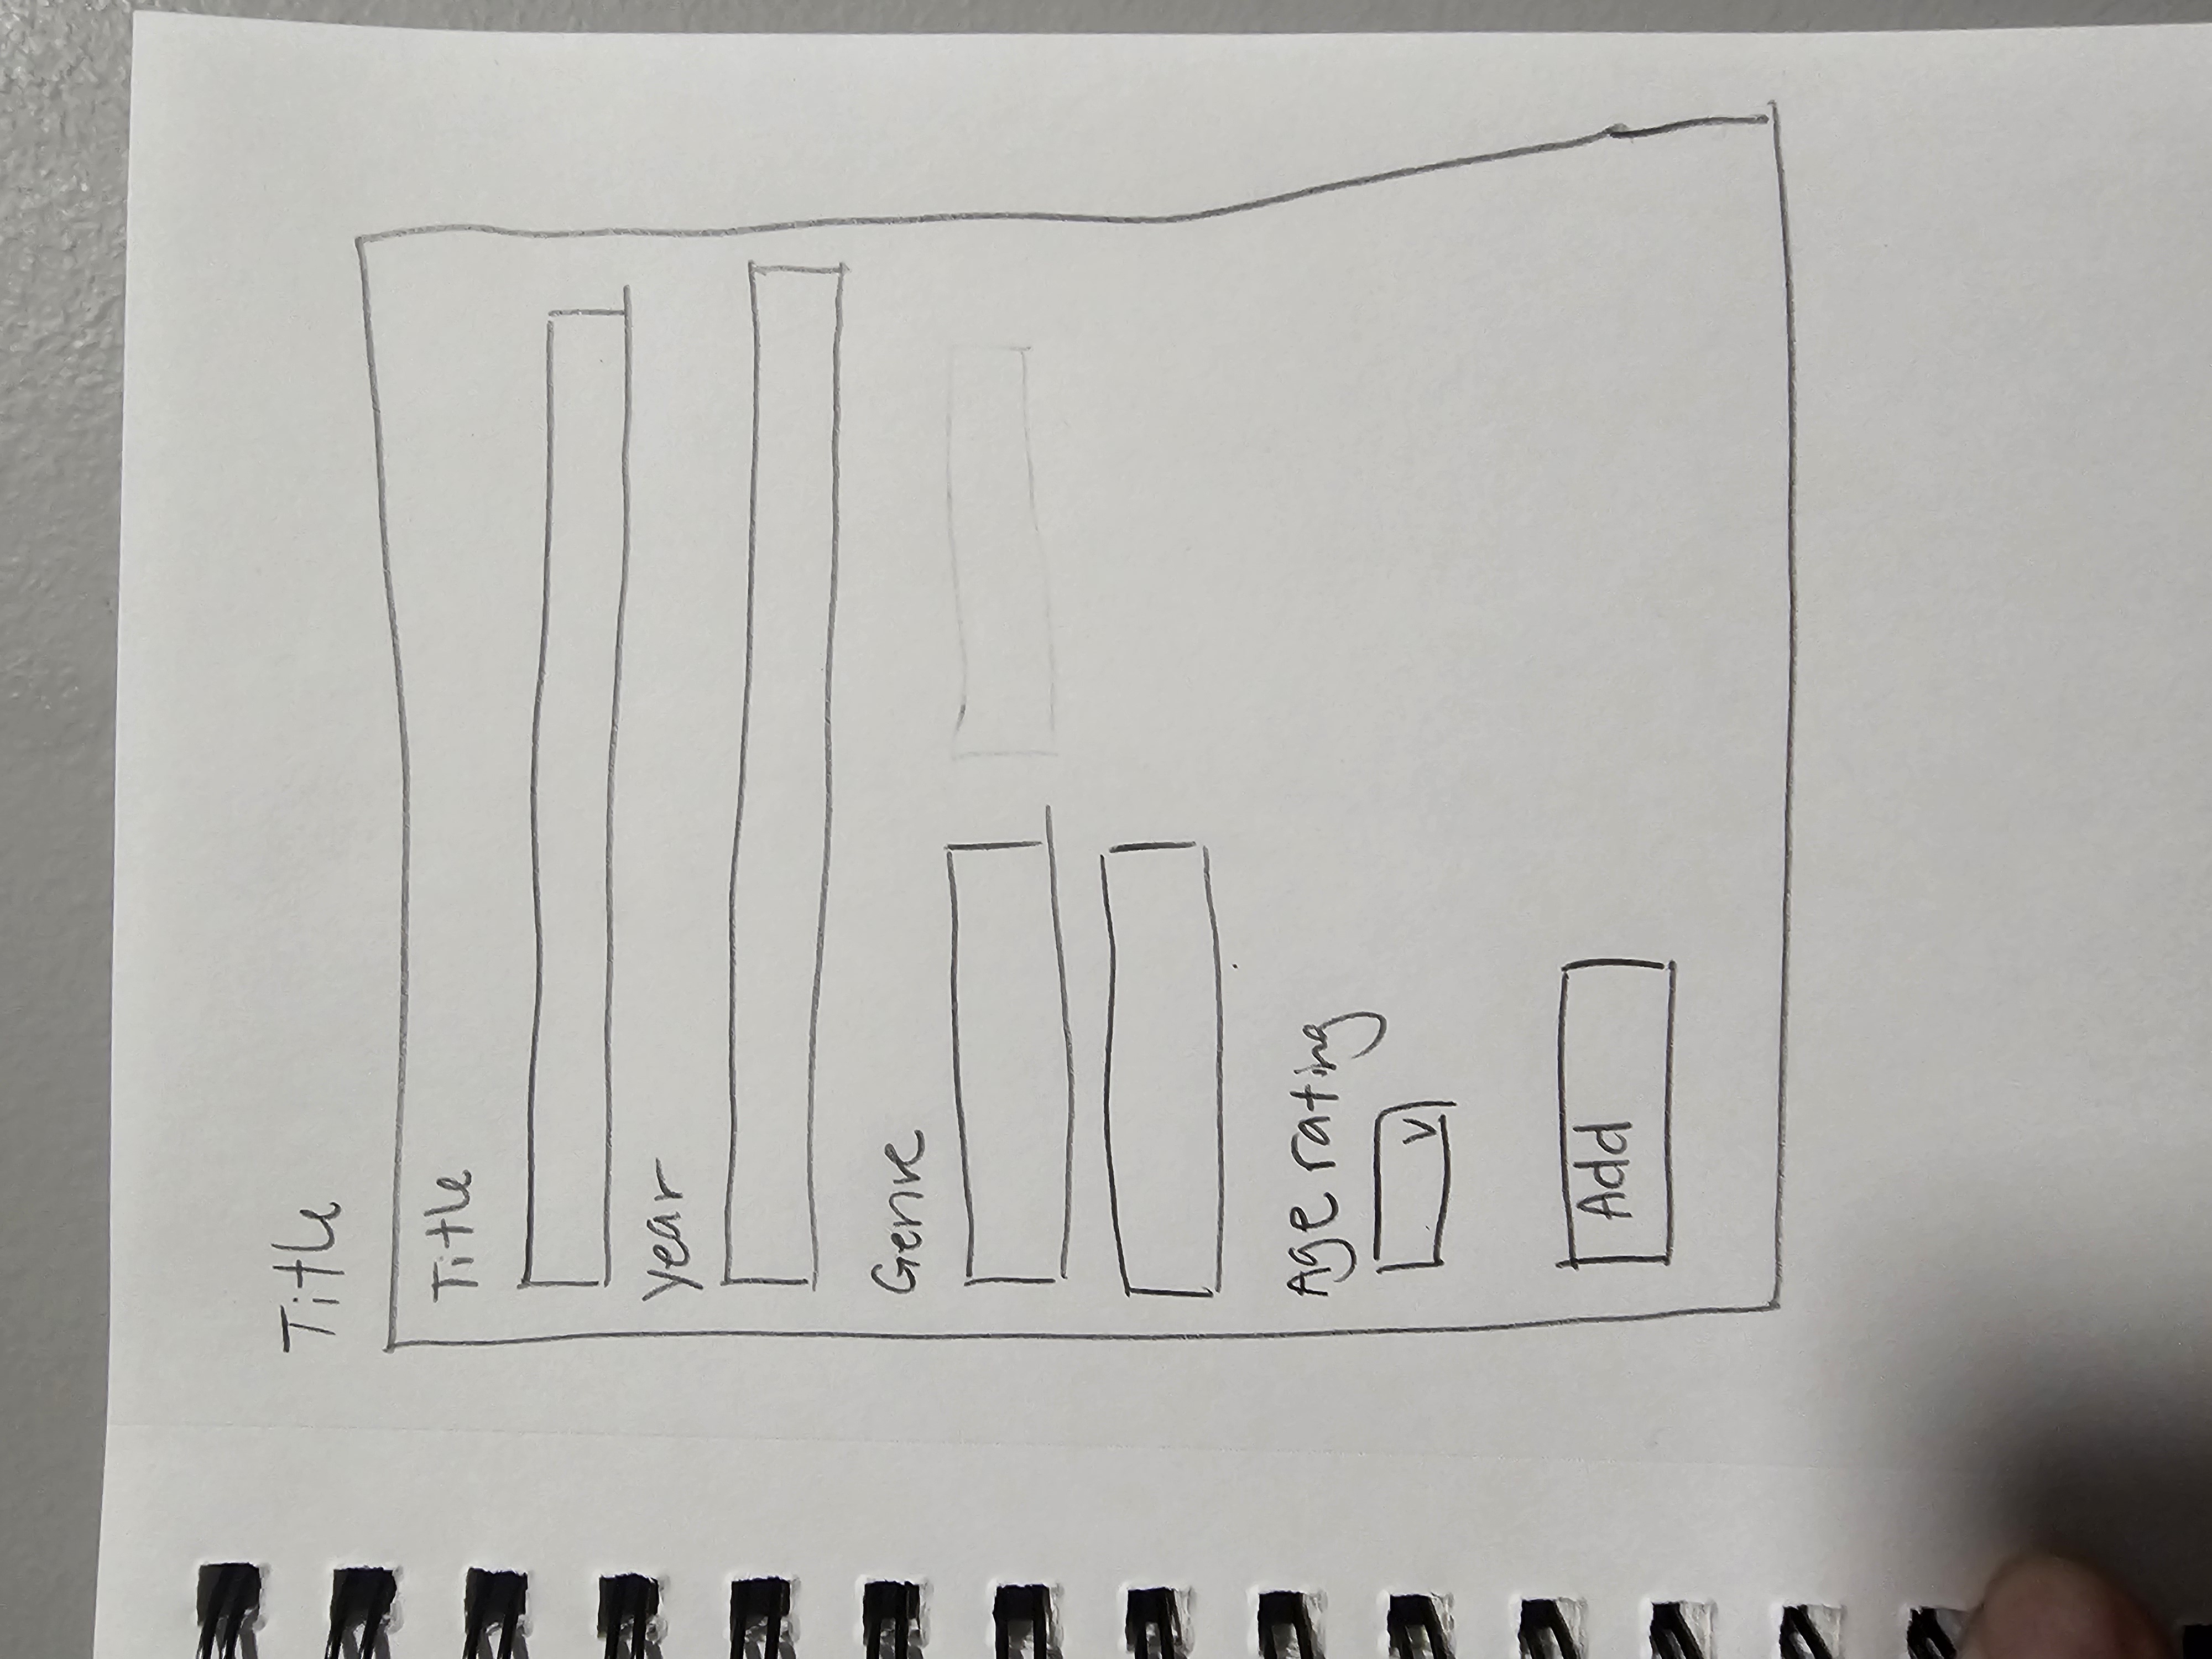 Title
Title
Year
Genre
Age rating
V
Add